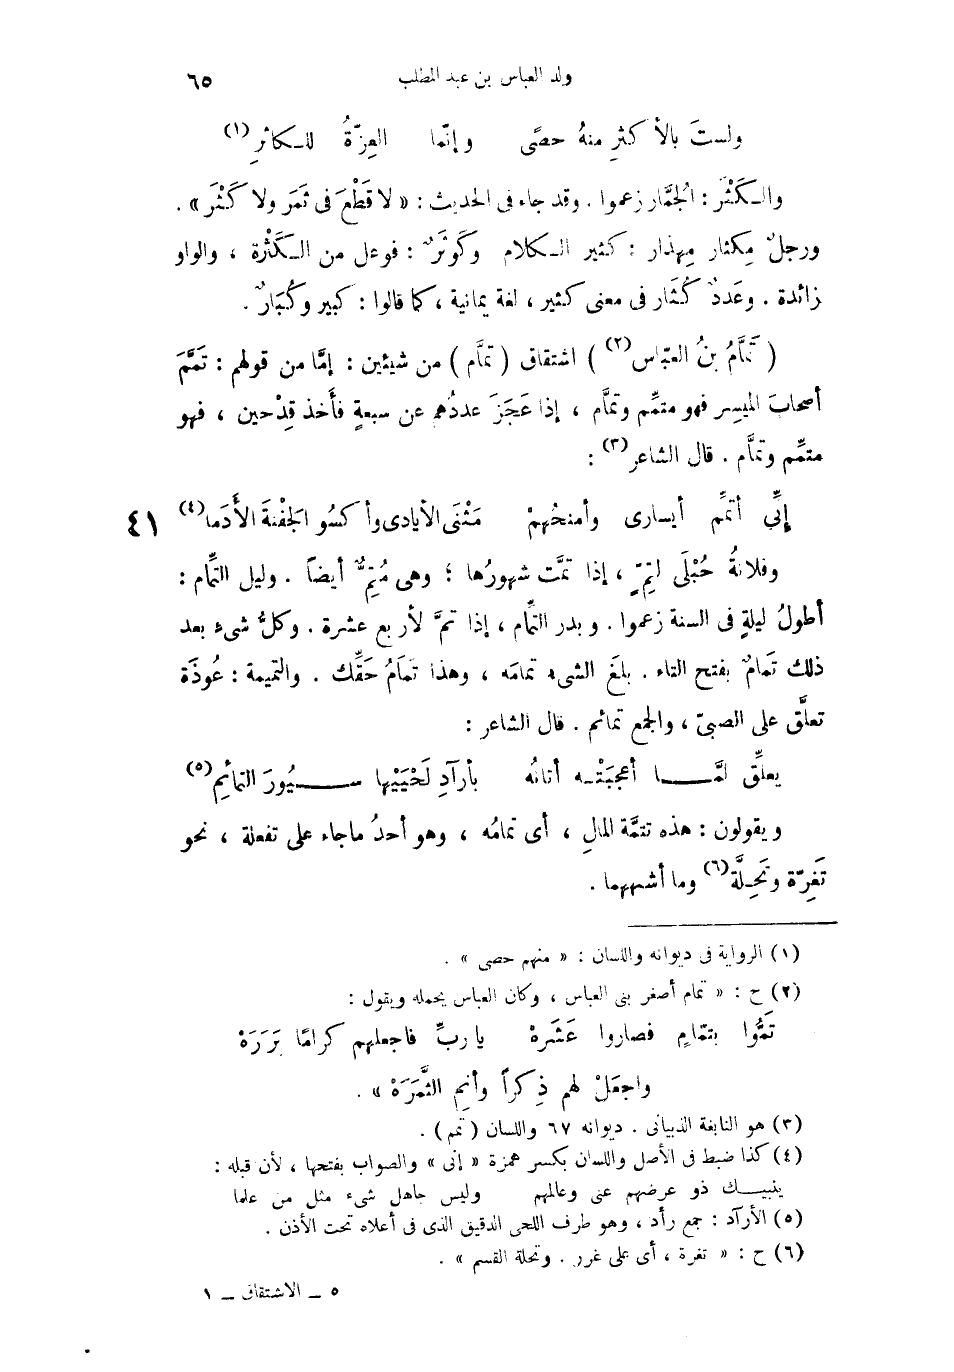 ولد العباس بن عبد المطلب ٦٥
ولستَ بالأكثرِ منهُ حصًى وإنّما العِزّةُ للكاثرِ(١)
والكَثْر : الجُمَّار زعموا . وقد جاء فى الحديث : « لا قَطْعَ فى ثَمَر ولا كَثَر » .
ورجلٌ مِكثار مِهذار : كثير الكلام وكَوثَرٌ : فوعل من الكَثْرة ، والواو
زائدة . وعَددٌ كُثَار فى معنى كثير ، لغة يمانية ، كما قالوا : كبير وكُبَارٌ .
( تَمَّامُ بنُ العبّاس(٢) ) اشتقاق ( تمَّام ) من شيئين : إمَّا من قولهم : تَمَّمَ
أصحابَ الميسِر فهو متمِّم وتمَّام ، إذا عَجَزَ عددُهم عن سبعةٍ فأَخذ قِدْحين ، فهو
متمِّم وتمَّام . قال الشاعر(٣) :
إنِّي أتمِّم أيسارى وأمنحُهمْ مَثْنَى الأيادى وأكسُو الجفْنةَ الأَدَما(٤) ٤١
وفلانةُ حُبْلَى لتِمٍّ ، إذا تمَّت شهورُها ؛ وهى مُتِمٌّ أيضاً . وليل التِّمام :
أطولُ ليلةٍ فى السنة زعموا . وبدر التِّمام ، إذا تمَّ لأربع عشرة . وكلُّ شىء بعد
ذلك تَمامٌ بفتح التاء . بلغَ الشىء تمامَه ، وهذا تَمَامُ حَقِّك . والتميمة : عُوذَة
تعلَّق على الصبىّ ، والجمع تمائم . قال الشاعر :
يعلِّق لمَّا أعجبَتْه أتانُه بأرآدِ لَحْيَيْها سيُورَ التمائِمِ(٥)
ويقولون : هذه تتمَّة المالِ ، أى تمامُه ، وهو أحدُ ماجاء على تفعلة ، نحو
تَغِرّة وتَحِلَّة(٦) وما أشبههما .
(١) الرواية فى ديوانه واللسان : « منهم حصى » .
(٢) ح : « تمام أصغر بنى العباس ، وكان العباس يحمله ويقول :
تَمُّوا بتمّامٍ فصاروا عَشَرهْ ياربِّ فاجعلهم كرامًا بَرَرَهْ
واجعَلْ لهم ذِكراً وأنمِ الثَّمَرَهْ » .
(٣) هو النابغة الذبيانى . ديوانه ٦٧ واللسان ( تمم ) .
(٤) كذا ضبط فى الأصل واللسان بكسر همزة « إنى » والصواب بفتحها ، لأن قبله :
ينبيك ذو عرضهم عنى وعالمهم وليس جاهل شىء مثل من علما
(٥) الأرآد : جمع رأد ، وهو طرف اللحى الدقيق الذى فى أعلاه تحت الأذن .
(٦) ح : « تغرة ، أى على غرر . وتحلة القسم » .
٥ ــ الاشتقاق ــ ١